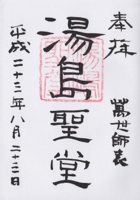 奉拝
萬世師表
湯島聖堂
平成二十三年八月二十三日